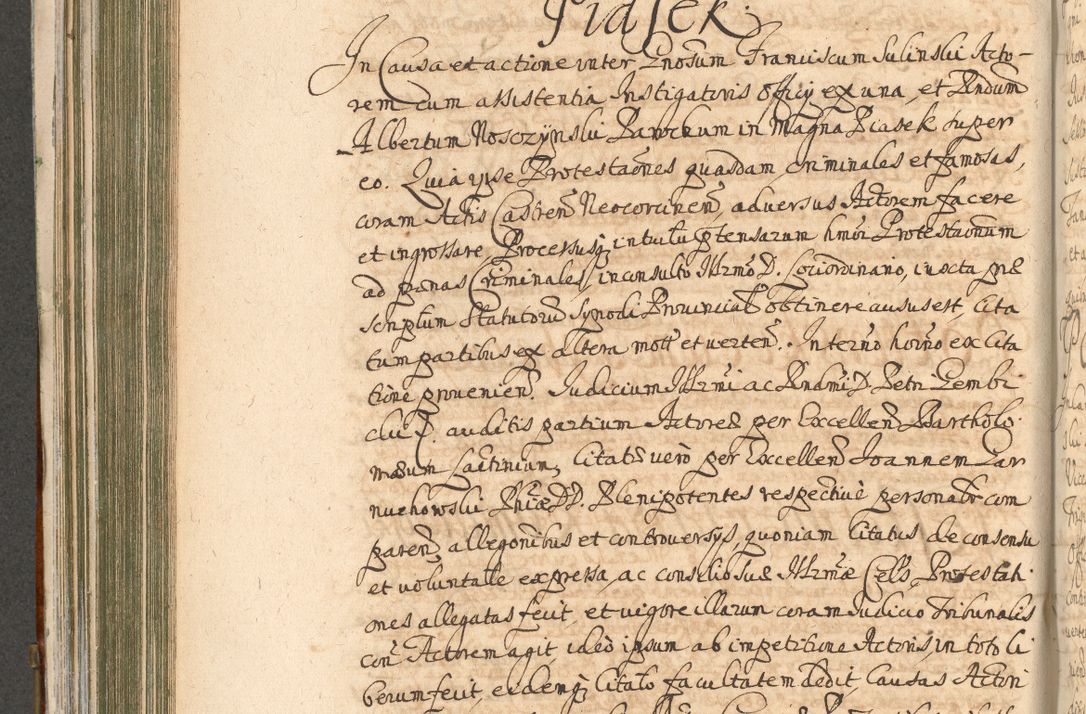 Piasek.
In Causa et actione inter Gnosum Franciscum Sulinski Acto-
rem cum assistentia Instigatoris Officij ex una, et Rndum
Albertum Nosczÿnski Parochum in Magna Piasek super
eo. Quia ipse Protestaones quasdam criminales et famosas,
coram Actis Castren Neocorcinen, adversus Actorem facere
et ingrossare, Processusq intuitu ptensarum hmoi Protestaonum
ad pænas Criminales, inconsulto Illrmo D. Lociordinario, iuxta præ
scriptum Statutoru Synodi Provincial obtinere ausus est, cita
tum partibus ex altera mott et verten. In termno hoiерno ex cita
tione provenien. Judicium Illrmi ac Rndmi D. Petri Gembi
cki P. auditis partium Actoreæ per Excellen Bartholo
mæum citatæ vero per Excellen Joannem Zar
nuchowski Phiæ DD. Plenipotentes respective personalr com
paren, allegonibus et controversijs, quoniam Citatus de consensu
et voluntate expressa, ac consilio suæ Illrmæ Cels. Protestati
ones allegatas fecit, et vigore illarum coram Judicio Tribunalis
con Actorem agit, ideo ipsum ab impetitione Actoris, in toto li
berum fecit, eidemq Citato facultatem dedit, Causas Actori